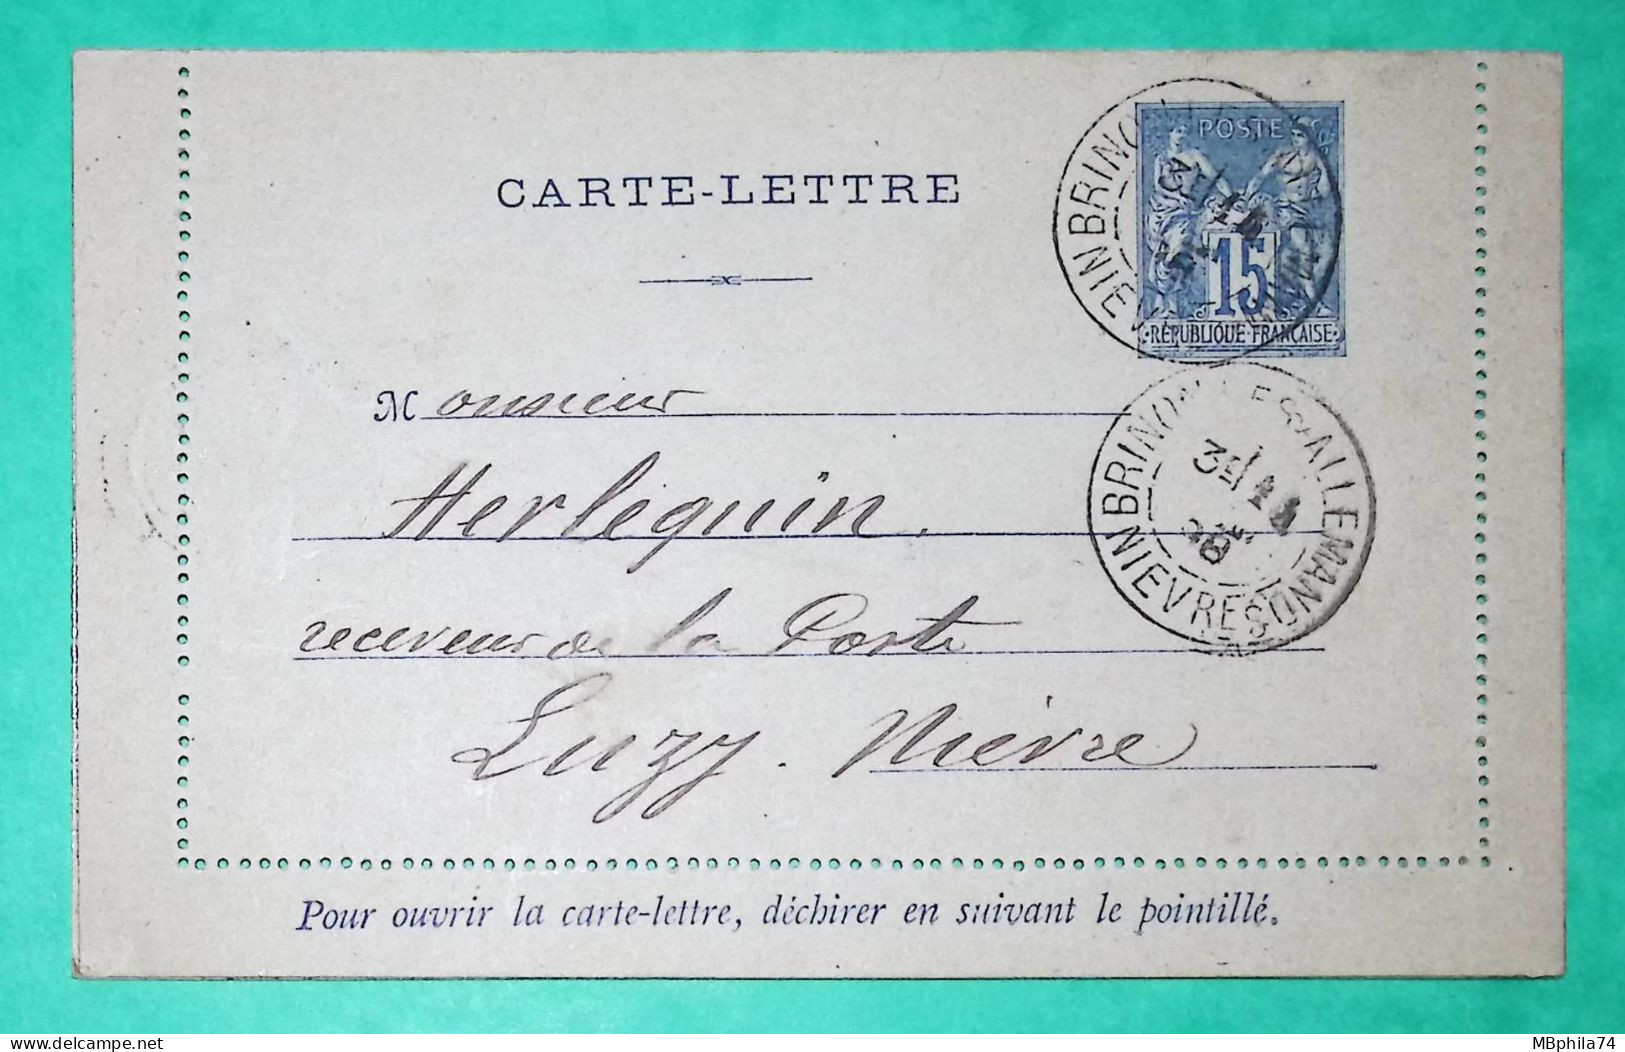 POSTES
CARTE-LETTRE
15
RÉPUBLIQUE FRANÇAISE
BRINON LES ALLEMANDS
NIEVRE
Monsieur
Herlequin,
receveur de la Poste
Luzy. Nièvre
BRINON LES ALLEMANDS
3E
NIEVRE
Pour ouvrir la carte-lettre, déchirer en suivant le pointillé.
delcampe.net
MBphila74